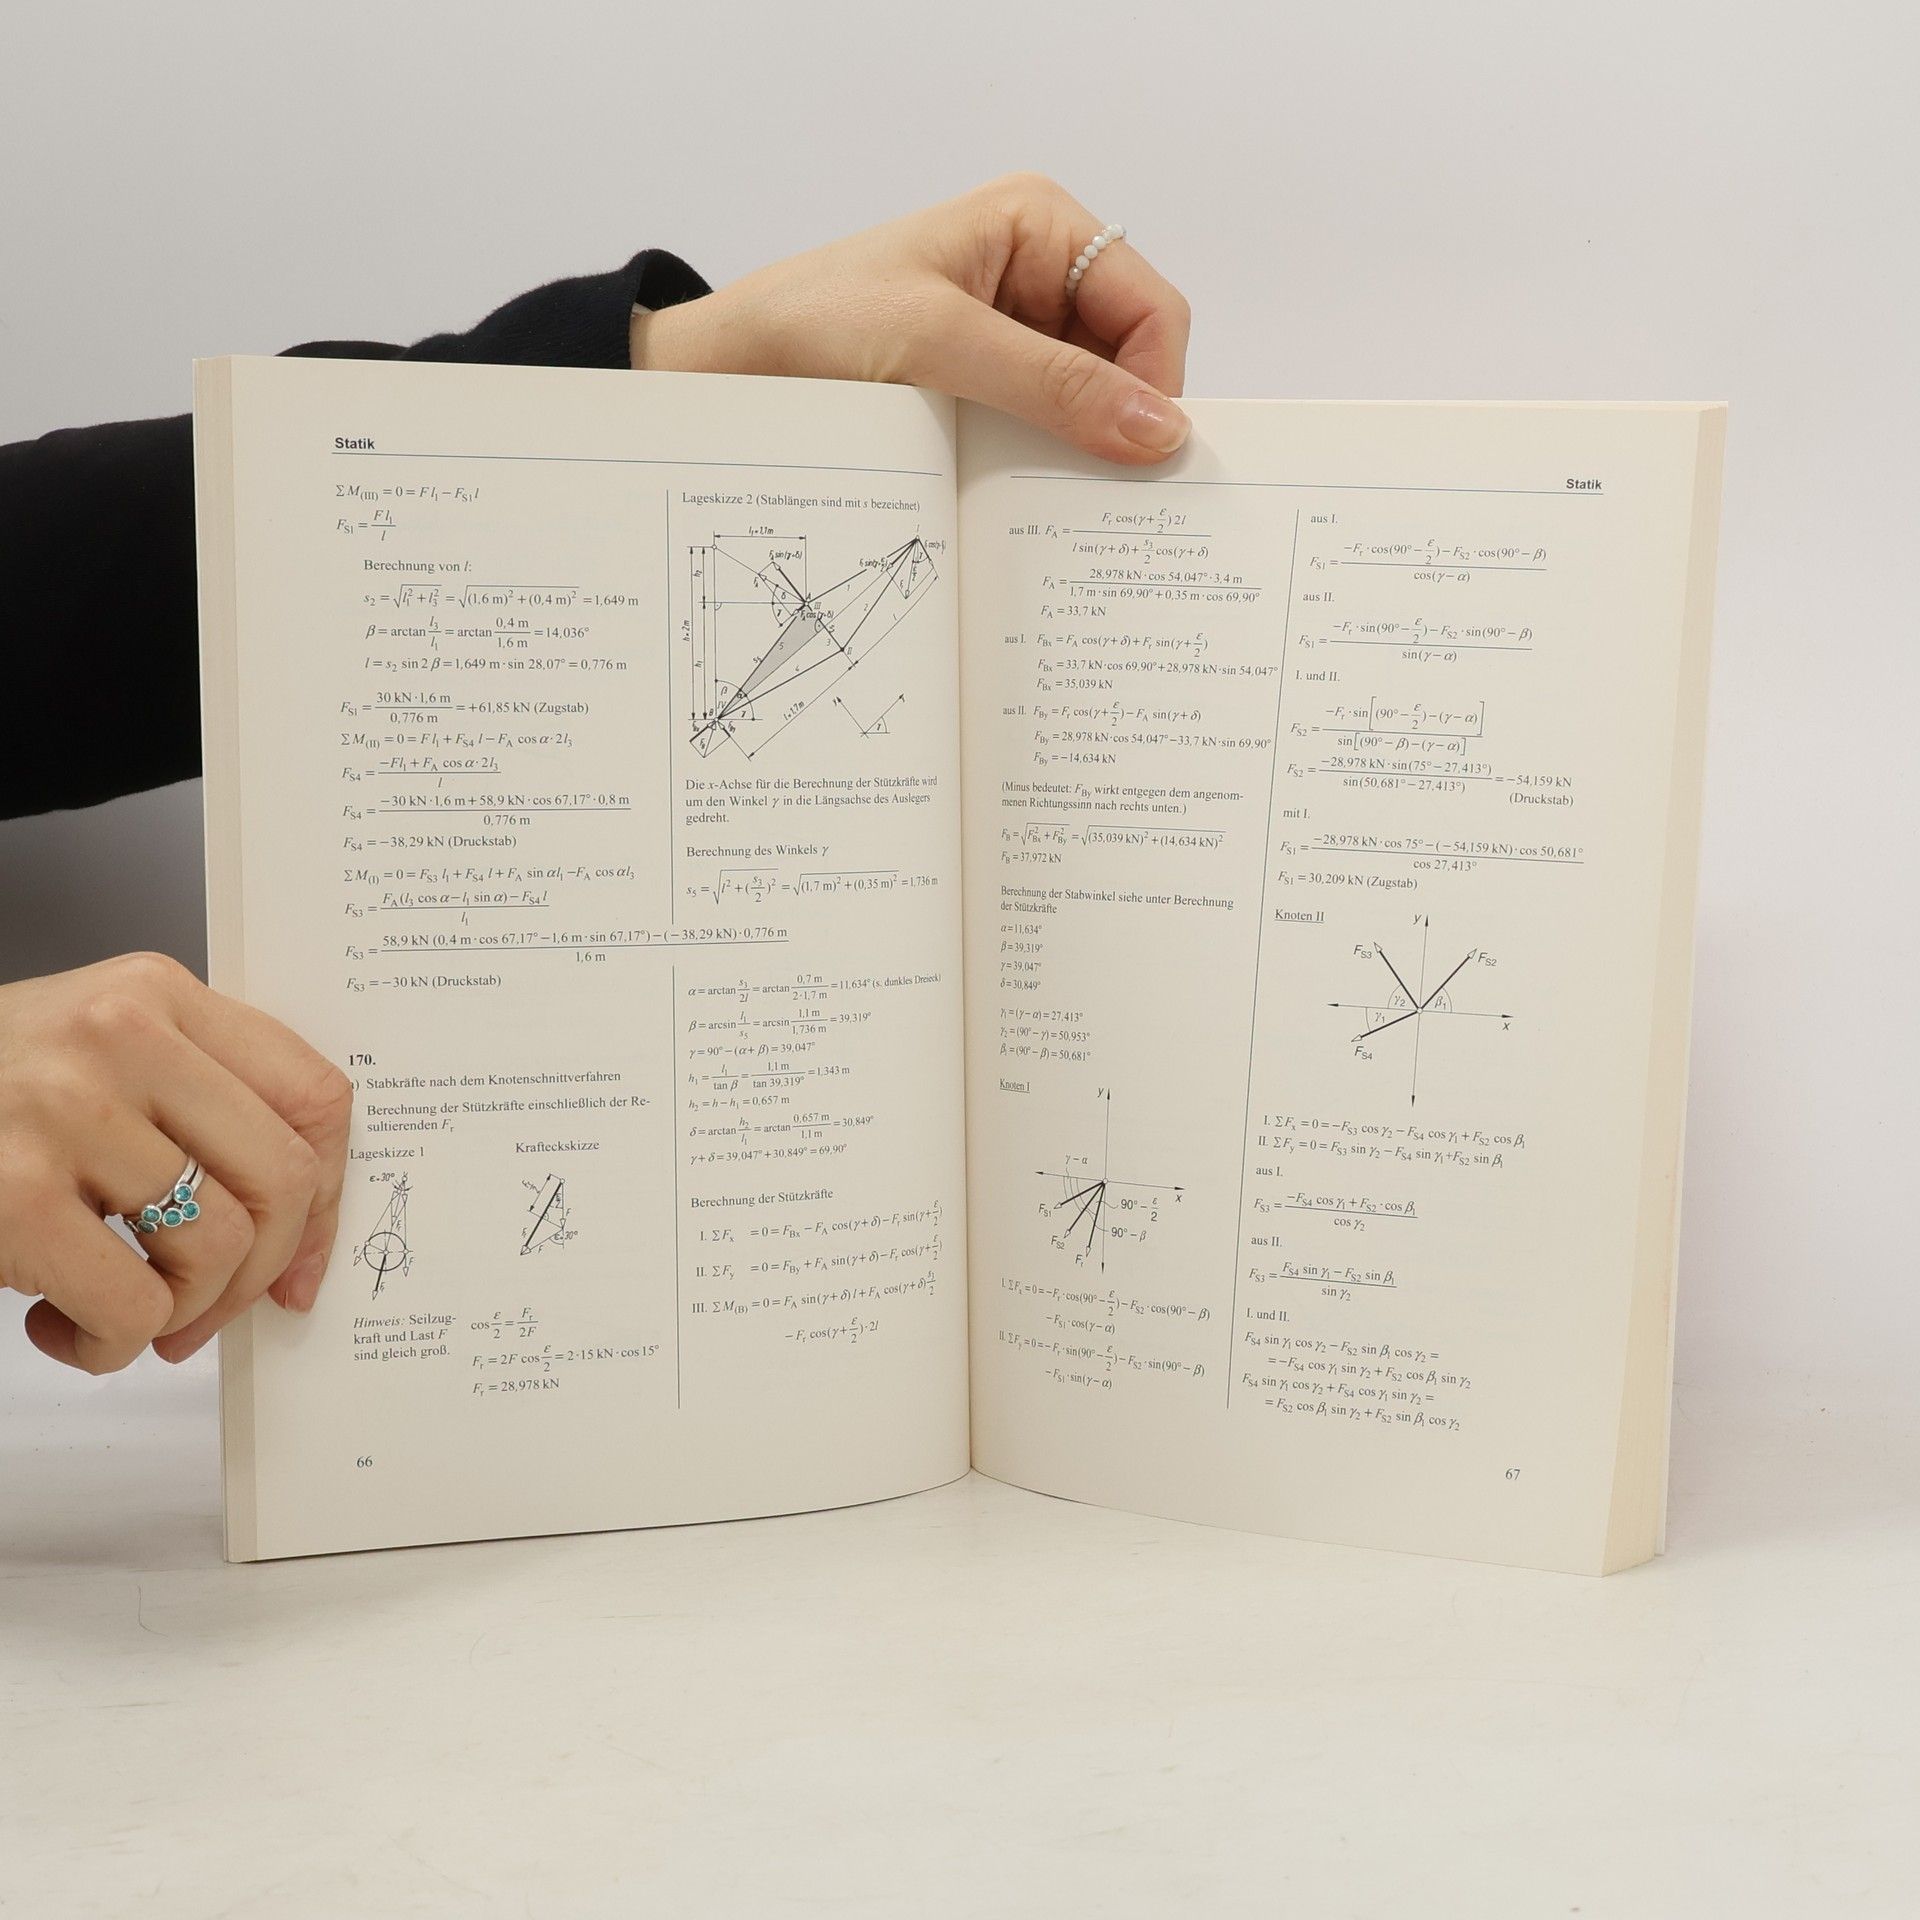 Statik
∑M(III) = 0 = F l₁ − F_S1 l
F_S1 = F l₁ / l
Berechnung von l:
s₂ = √(l₁² + l₃²) = √((1,6 m)² + (0,4 m)²) = 1,649 m
β = arctan l₃/l₁ = arctan 0,4 m / 1,6 m = 14,036°
l = s₂ sin 2β = 1,649 m · sin 28,07° = 0,776 m
F_S1 = 30 kN · 1,6 m / 0,776 m = +61,85 kN (Zugstab)
∑M(II) = 0 = F l₁ + F_S4 l − F_A cos α · 2l₃
F_S4 = (−F l₁ + F_A cos α · 2l₃) / l
F_S4 = (−30 kN · 1,6 m + 58,9 kN · cos 67,17° · 0,8 m) / 0,776 m
F_S4 = −38,29 kN (Druckstab)
∑M(I) = 0 = F_S3 l₁ + F_S4 l + F_A sin α l₁ − F_A cos α l₃
F_S3 = (F_A (l₃ cos α − l₁ sin α) − F_S4 l) / l₁
F_S3 = (58,9 kN (0,4 m · cos 67,17° − 1,6 m · sin 67,17°) − (−38,29 kN) · 0,776 m) / 1,6 m
F_S3 = −30 kN (Druckstab)
170.
) Stabkräfte nach dem Knotenschnittverfahren
Berechnung der Stützkräfte einschließlich der Re-
sultierenden F_r
Lageskizze 1
Krafteckskizze
ε=30°
F_r
F
F
F_r
F_r
F
F
ε=30°
Hinweis: Seilzug-
kraft und Last F
sind gleich groß.
cos ε/2 = F_r / 2F
F_r = 2F cos ε/2 = 2 · 15 kN · cos 15°
F_r = 28,978 kN
66
Lageskizze 2 (Stablängen sind mit s bezeichnet)
l₁=1,1m
h=2m
h₂
h₁
F_A sin(γ+δ)
F_A cos(γ+δ)
A
III
I
II
IV
B
1
2
3
4
5
l
l=1,7m
β
α
γ
δ
Die x-Achse für die Berechnung der Stützkräfte wird
um den Winkel γ in die Längsachse des Auslegers
gedreht.
Berechnung des Winkels γ
s₅ = √(l² + (s₃/2)²) = √((1,7 m)² + (0,35 m)²) = 1,736 m
α = arctan s₃/2l = arctan 0,7 m / 2·1,7 m = 11,634° (s. dunkles Dreieck)
β = arcsin l₁/s₅ = arcsin 1,1 m / 1,736 m = 39,319°
γ = 90° − (α + β) = 39,047°
h₁ = l₁ / tan β = 1,1 m / tan 39,319° = 1,343 m
h₂ = h − h₁ = 0,657 m
δ = arctan h₂/l₁ = arctan 0,657 m / 1,1 m = 30,849°
γ + δ = 39,047° + 30,849° = 69,90°
Berechnung der Stützkräfte
I. ∑F_x = 0 = F_Bx − F_A cos(γ+δ) − F_r sin(γ + ε/2)
II. ∑F_y = 0 = F_By + F_A sin(γ+δ) − F_r cos(γ + ε/2)
III. ∑M(B) = 0 = F_A sin(γ+δ) l + F_A cos(γ+δ) s₃/2
− F_r cos(γ + ε/2) · 2l
Statik
aus III. F_A = F_r cos(γ + ε/2) 2l / (l sin(γ+δ) + s₃/2 cos(γ+δ))
F_A = 28,978 kN · cos 54,047° · 3,4 m / (1,7 m · sin 69,90° + 0,35 m · cos 69,90°)
F_A = 33,7 kN
aus I. F_Bx = F_A cos(γ+δ) + F_r sin(γ + ε/2)
F_Bx = 33,7 kN · cos 69,90° + 28,978 kN · sin 54,047°
F_Bx = 35,039 kN
aus II. F_By = F_r cos(γ + ε/2) − F_A sin(γ+δ)
F_By = 28,978 kN · cos 54,047° − 33,7 kN · sin 69,90°
F_By = −14,634 kN
(Minus bedeutet: F_By wirkt entgegen dem angenom-
menen Richtungssinn nach rechts unten.)
F_B = √(F_Bx² + F_By²) = √((35,039 kN)² + (14,634 kN)²)
F_B = 37,972 kN
Berechnung der Stabwinkel siehe unter Berechnung
der Stützkräfte
α = 11,634°
β = 39,319°
γ = 39,047°
δ = 30,849°
γ₁ = (γ − α) = 27,413°
γ₂ = (90° − γ) = 50,953°
β₁ = (90° − β) = 50,681°
Knoten I
y
γ − α
x
F_S1
90° − ε/2
F_S2
90° − β
F_r
I. ∑F_x = 0 = −F_r · cos(90° − ε/2) − F_S2 · cos(90° − β)
− F_S1 · cos(γ − α)
II. ∑F_y = 0 = −F_r · sin(90° − ε/2) − F_S2 · sin(90° − β)
− F_S1 · sin(γ − α)
aus I.
F_S1 = (−F_r · cos(90° − ε/2) − F_S2 · cos(90° − β)) / cos(γ − α)
aus II.
F_S1 = (−F_r · sin(90° − ε/2) − F_S2 · sin(90° − β)) / sin(γ − α)
I. und II.
F_S2 = −F_r · sin[(90° − ε/2) − (γ − α)] / sin[(90° − β) − (γ − α)]
F_S2 = −28,978 kN · sin(75° − 27,413°) / sin(50,681° − 27,413°) = −54,159 kN
(Druckstab)
mit I.
F_S1 = (−28,978 kN · cos 75° − (−54,159 kN) · cos 50,681°) / cos 27,413°
F_S1 = 30,209 kN (Zugstab)
Knoten II
y
F_S3
F_S2
γ₂
β₁
γ₁
x
F_S4
I. ∑F_x = 0 = −F_S3 cos γ₂ − F_S4 cos γ₁ + F_S2 cos β₁
II. ∑F_y = 0 = F_S3 sin γ₂ − F_S4 sin γ₁ + F_S2 sin β₁
aus I.
F_S3 = (−F_S4 cos γ₁ + F_S2 · cos β₁) / cos γ₂
aus II.
F_S3 = (F_S4 sin γ₁ − F_S2 sin β₁) / sin γ₂
I. und II.
F_S4 sin γ₁ cos γ₂ − F_S2 sin β₁ cos γ₂ =
= −F_S4 cos γ₁ sin γ₂ + F_S2 cos β₁ sin γ₂
F_S4 sin γ₁ cos γ₂ + F_S4 cos γ₁ sin γ₂ =
= F_S2 cos β₁ sin γ₂ + F_S2 sin β₁ cos γ₂
67